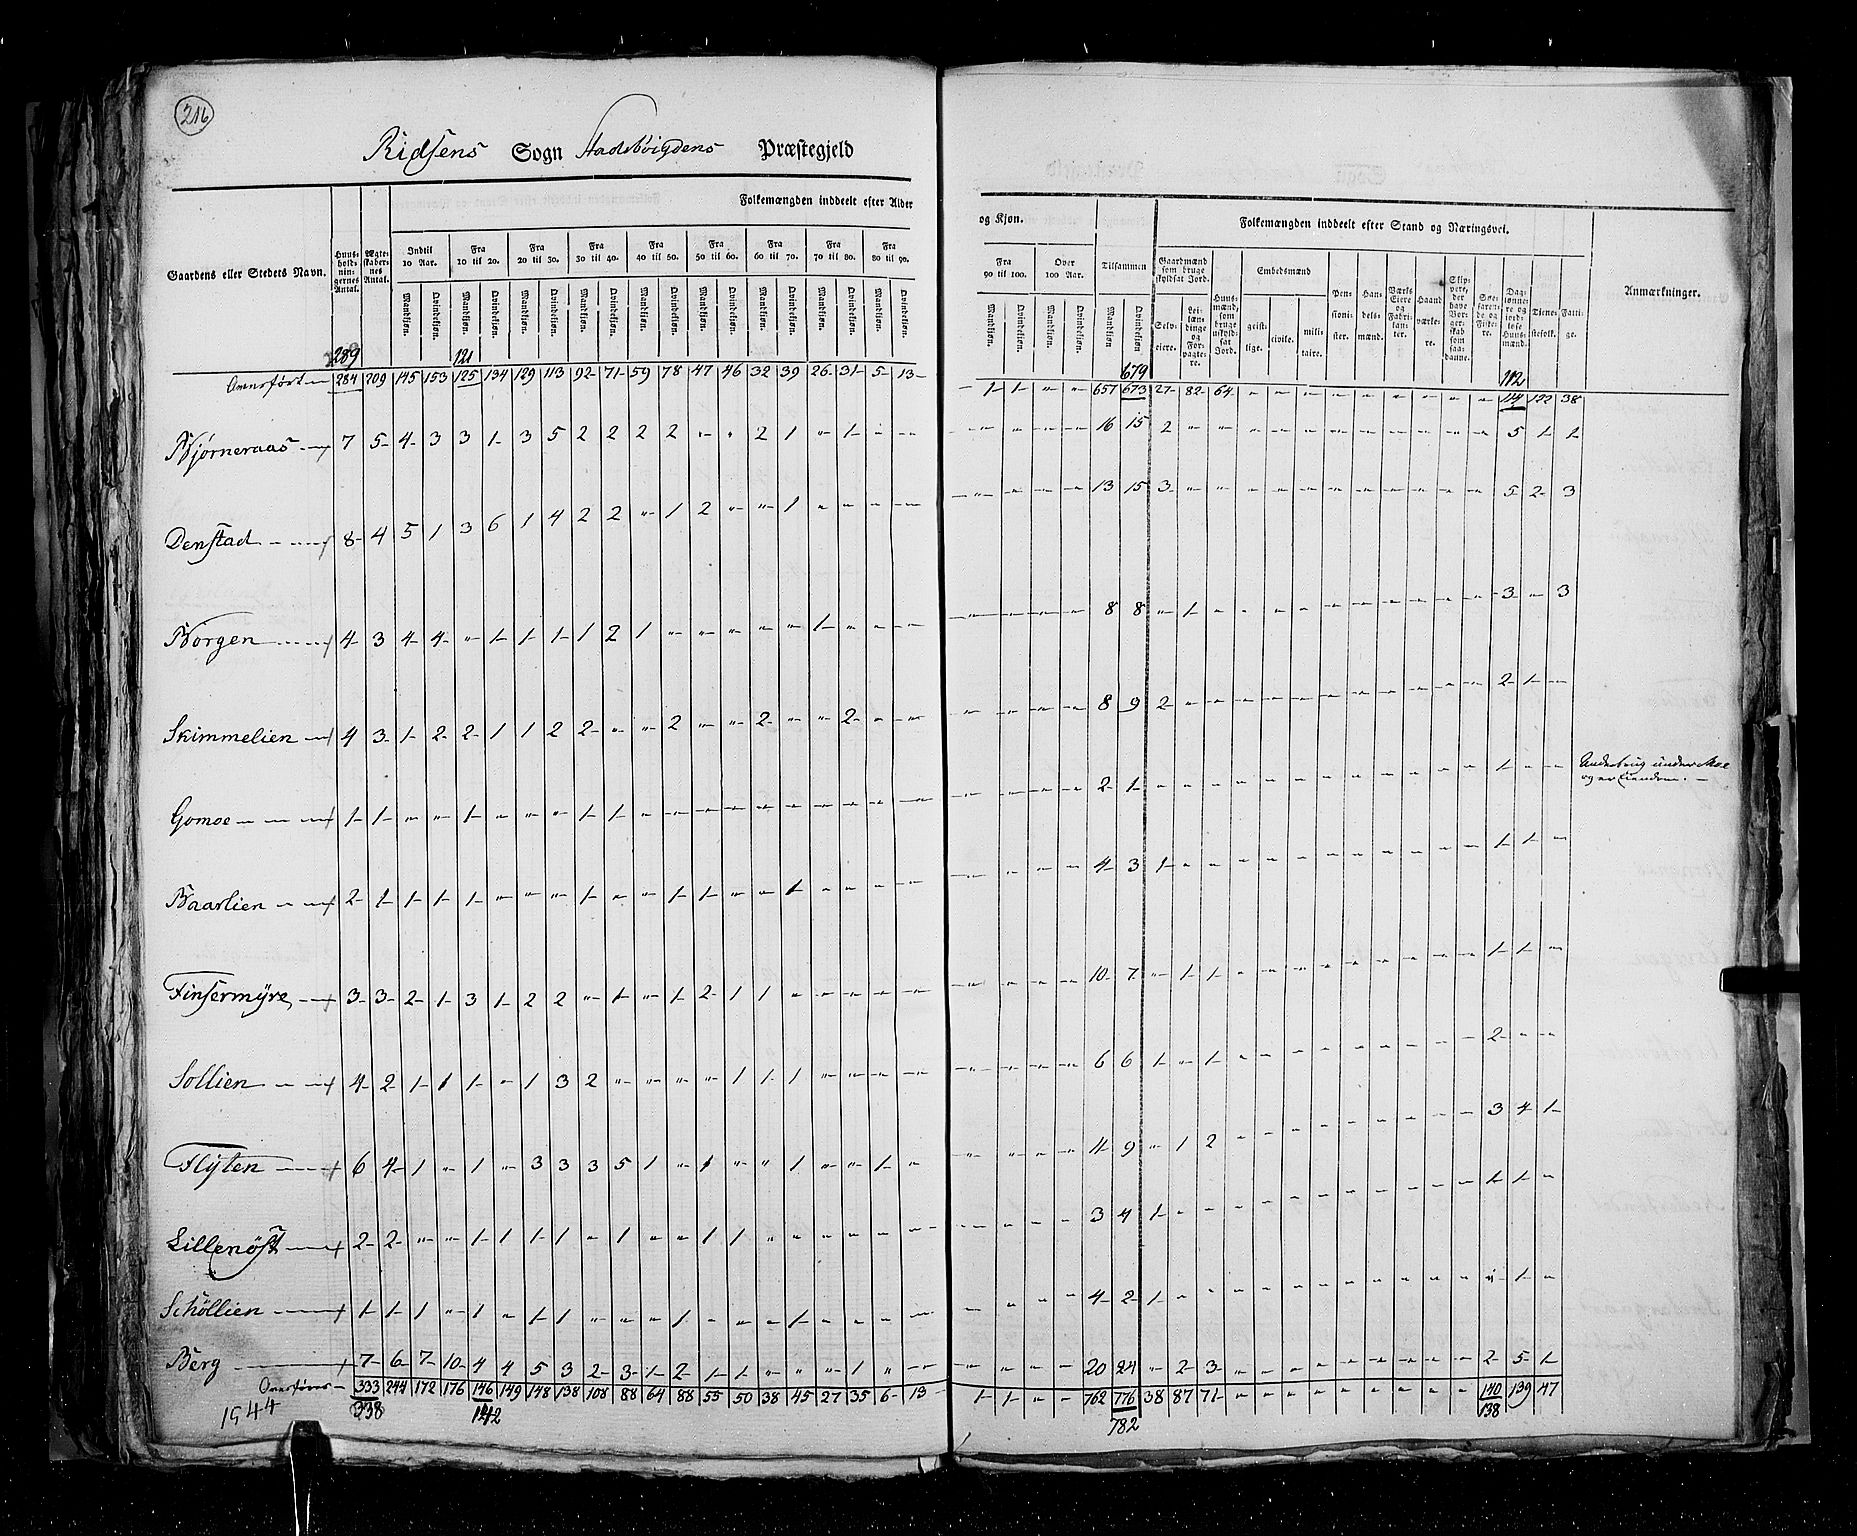 216
Ridsens Sogn Stadsbøigdens Præstegjeld
Gaardens eller Stedets Navn.
Huus-
hold-
nin-
gernes
Antal.
Ægte-
skaber-
nes
Antal.
Folkemængden inddeelt efter Alder
og Kjøn.
Indtil
10 Aar.
Fra
10 til 20.
Fra
20 til 30.
Fra
30 til 40.
Fra
40 til 50.
Fra
50 til 60.
Fra
60 til 70.
Fra
70 til 80.
Fra
80 til 90.
Fra
90 til 100.
Over
100 Aar.
Tilsammen
Mandkjøn. Qvindekjøn. Mandkjøn. Qvindekjøn. Mandkjøn. Qvindekjøn. Mandkjøn. Qvindekjøn. Mandkjøn. Qvindekjøn. Mandkjøn. Qvindekjøn. Mandkjøn. Qvindekjøn. Mandkjøn. Qvindekjøn. Mandkjøn. Qvindekjøn. Mandkjøn. Qvindekjøn. Mandkjøn. Qvindekjøn. Mandkjøn Qvindekjøn
Folkemængden inddeelt efter Stand og Næringsvei.
Gaardmænd
som bruge
skyldsat Jord.
Selv-
eiere.
Lei-
læn-
dinge
og
For-
pagte-
re.
Huus-
mænd,
som
bruge
uskyld-
sat
Jord.
Embedsmænd
geist-
lige.
civile.
mili-
taire.
Pen-
sioni-
ster.
Han-
dels-
mænd.
Værks
Eiere
og
Fabri-
kan-
ter.
Haand
værke-
re.
Skip-
pere,
der
have
Bor-
ger-
skab
som
saa-
danne.
Søe-
faren-
de og
Fiske-
re.
Dag-
lønne-
re og
jord-
løse
Huus-
mænd.
Tjene-
stefolk.
Fatti-
ge.
Anmærkninger.
289 121 679 112
Overført 284 209 145 153 125 134 129 113 92 71 59 78 47 46 32 39 26 31 5 13 1 1 " " 657 673 27 82 64 114 122 38
Bjørneraas 7 5 4 3 3 1 3 5 2 2 2 2 " " 2 1 " 1 " " 16 15 2 " " 5 1 1
Denstad 8 4 5 1 3 6 1 4 2 2 " 1 2 " " 1 " " " " 13 15 3 " " 5 2 3
Borgen 4 3 4 4 " 1 1 1 1 2 1 " " " " " 1 " " " 8 8 " 1 " 3 " 3
Skimmelien 4 3 1 2 2 1 1 2 2 " " 2 " " 2 " " 2 " " 8 9 2 " " 2 1 "
Gomoe 1 1 " " 1 " " " 1 1 " " " " " " " " " " 2 1 " " " 1 " "
Underbrug under Moe
og er Eiendom.
Baarlien 2 1 1 1 1 " " " 1 " " 1 1 " " 1 " " " " 4 3 1 " " 1 1 "
Finsermyre 3 3 2 1 3 1 2 2 " 1 " 1 2 1 1 " " " " " 10 7 " 1 1 1 1 "
Sollien 4 2 1 1 1 " 1 3 2 " " " " 1 1 1 " " " " 6 6 1 " 1 2 " "
Flyten 6 4 1 " 1 " 3 3 3 5 1 " 1 " " 1 " " 1 " 11 9 " 1 2 3 4 1
Lillenöst 2 2 " " 1 1 1 1 " 1 " " 1 1 " " " " " " 3 4 1 " " 1 1 "
Schöllien 1 1 1 " 1 " 1 1 " " " 1 " " " 1 " " " " 4 2 1 " " " 1 "
Berg 7 6 7 10 4 4 5 3 2 3 1 2 1 1 " " " 1 " " 20 24 " 2 3 2 5 1
Overføres 333 244 172 176 146 149 148 138 108 88 64 88 55 50 38 45 27 35 6 13 1 1 " " 762 776 38 87 71 140 139 47
1944 338 142 782 138